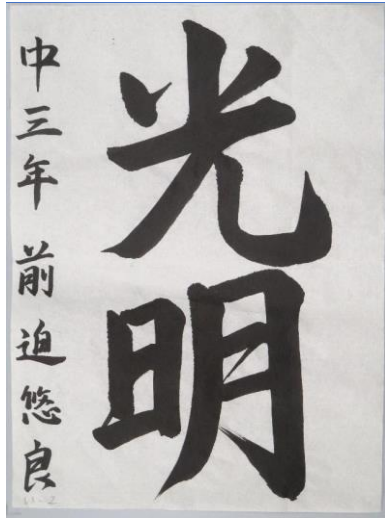 光明
中三年 前迫悠良